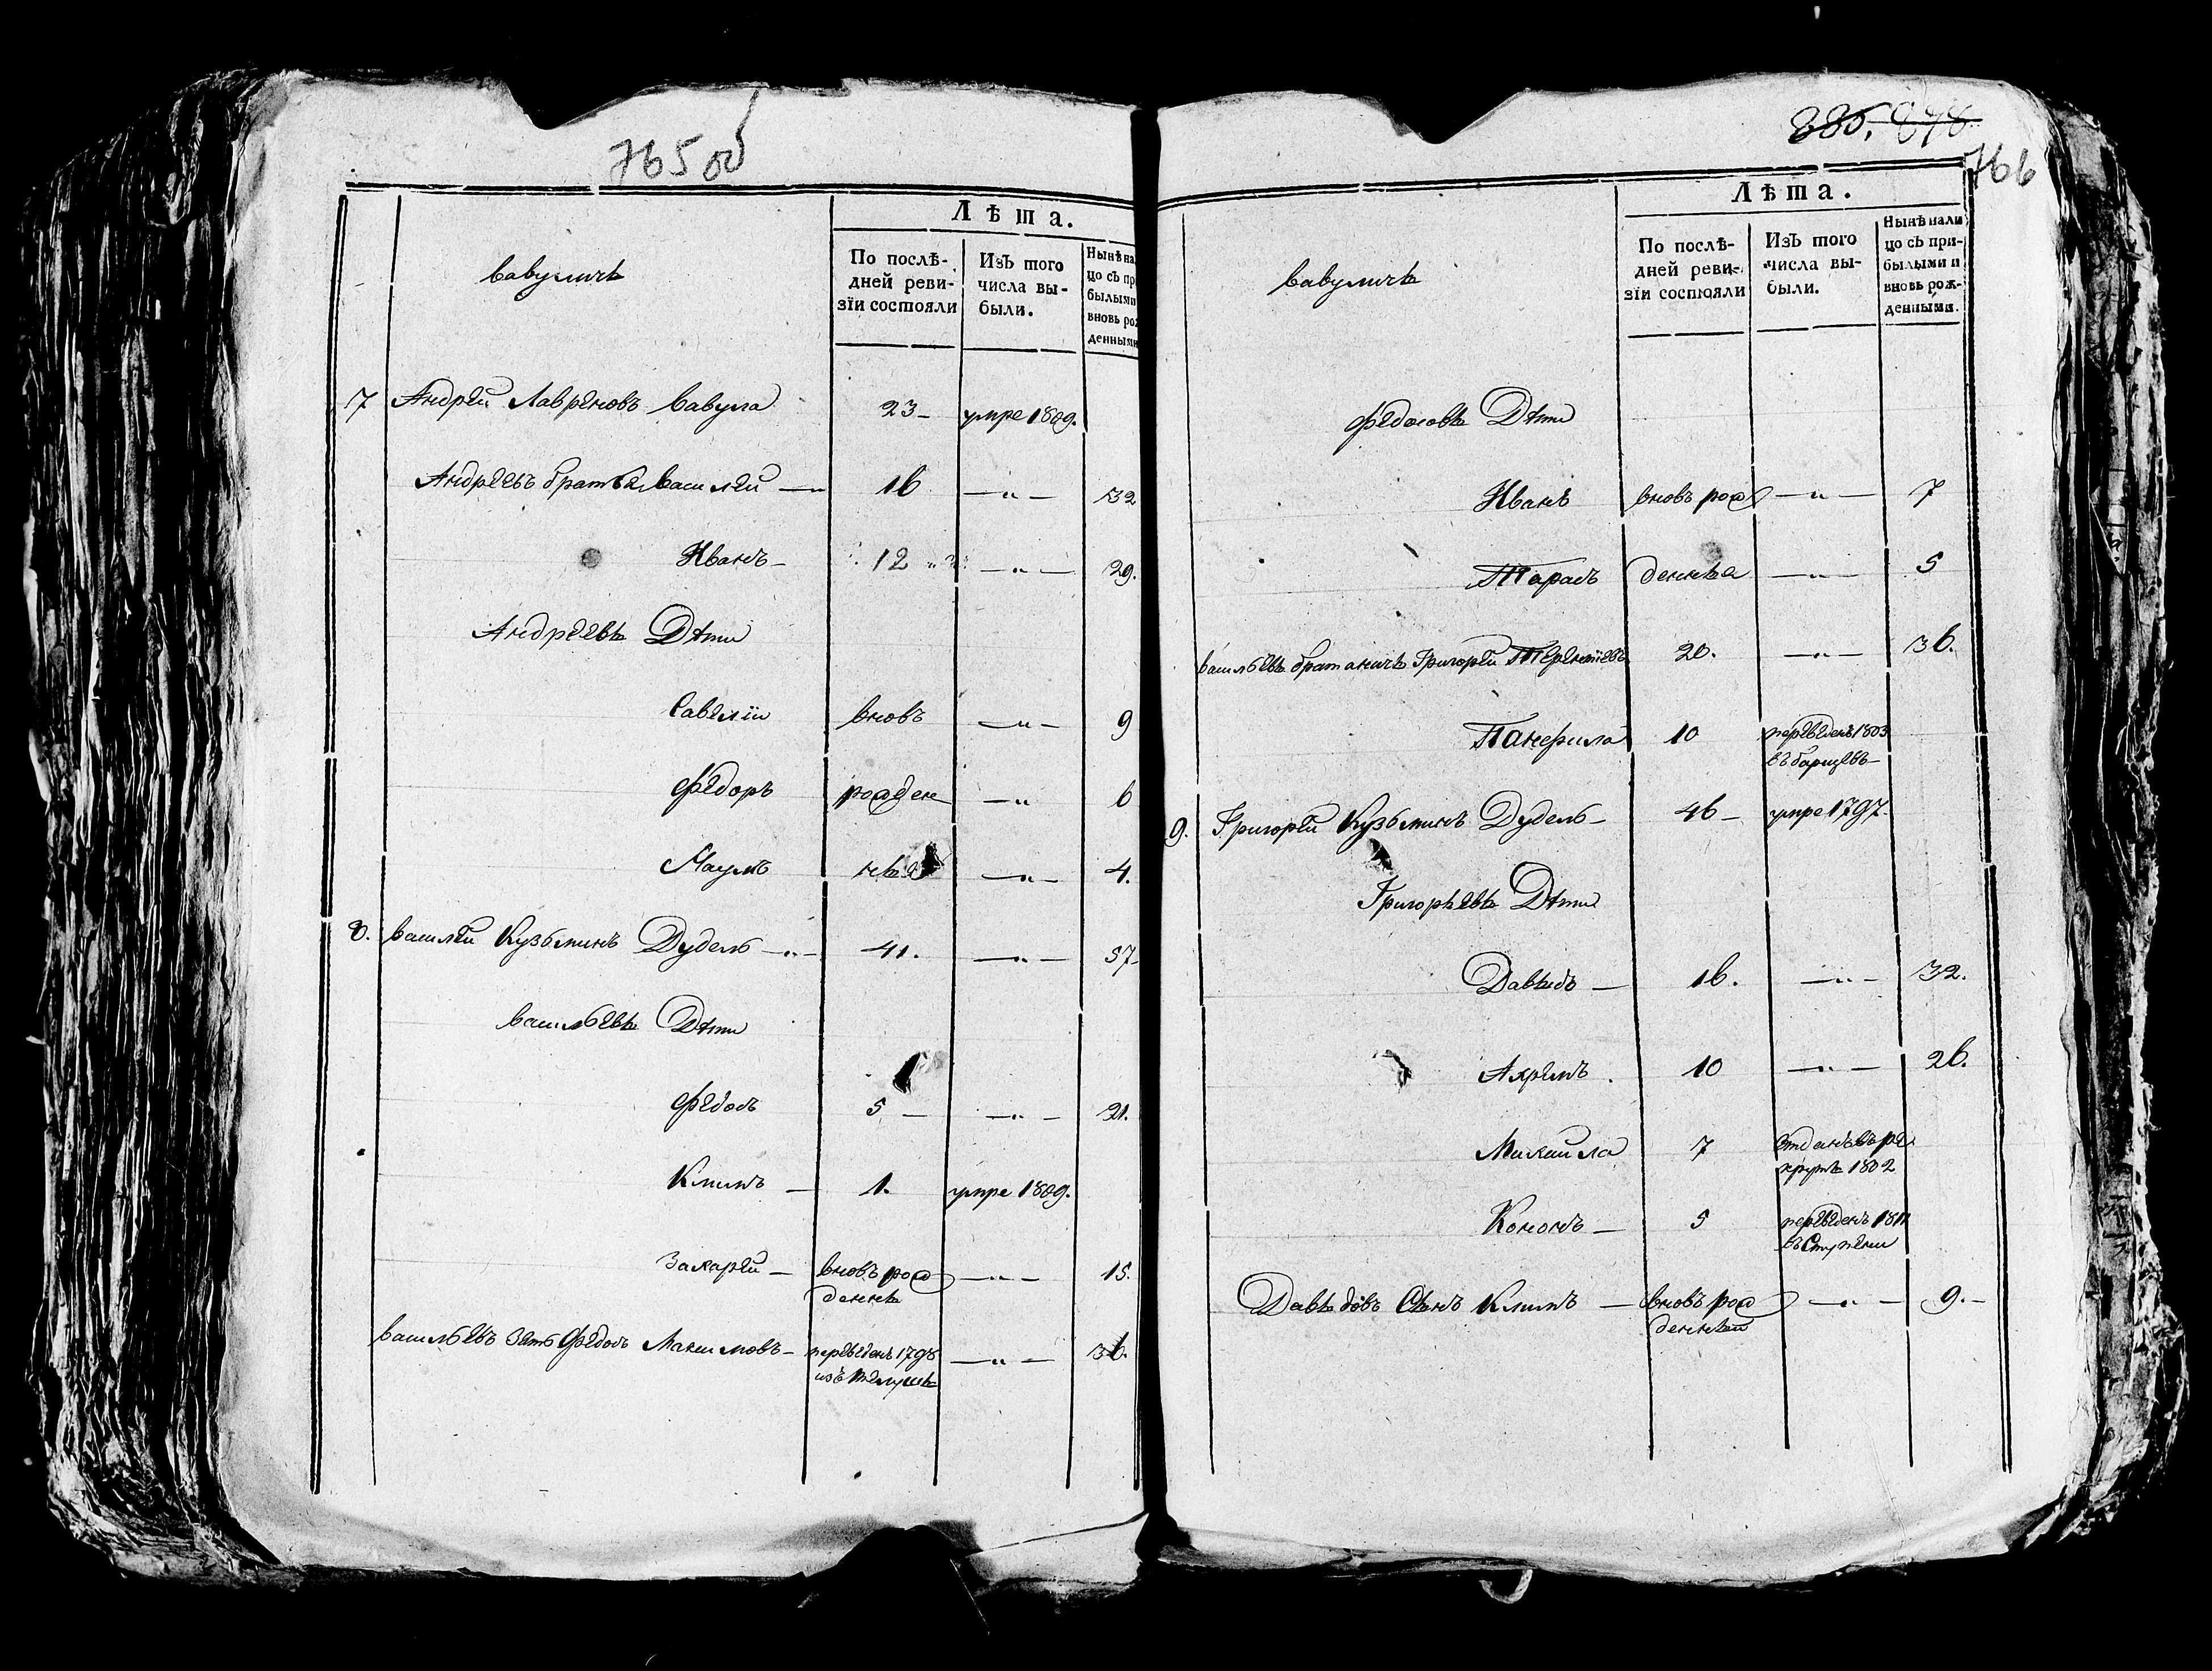 765 об
Лѣта.
Вавуличи
По послѣ-
дней реви-
зїи состояли
Изъ того
числа вы-
были.
Нынѣ на
цо съ пр
былыми
вновь ро
денными
7 Андрей Лавреновъ Вавула 23 – умре 1809.
Андреевъ братья Василей — 16 — " — 32
Иванъ – 12 — " — 29.
Андреевы Дѣти
Савелїи вновь — " — 9
Федоръ рожден — " 6
Наумъ ныя — " — 4.
8. Василей Кузьминъ Дудель — " — 41. — " — 57
Васильевы Дѣти
Федосъ 5 — — " — 21.
Климъ — 1. умре 1809.
Захарей — вновь рож — " — 15.
денны
Васильевъ зять Федосъ Максимовъ – переведенъ 1798 — " — 36.
изъ
885, 878
766
Лѣта.
Вавуличи
По послѣ-
дней реви-
зїи состояли
Изъ того
числа вы-
были.
Нынѣ нали
цо съ при-
былыми и
вновь рож-
денными.
Федосовы Дѣти
Иванъ вновь рож — " — 7
Тарасъ денныя — " — 5
Васильевы братаничи Григорей Терентїевъ 20. — " — 36.
Панфила 10 переведенъ 1803
въ
9. Григорей Кузьминъ Дудель – 46 – умре 1797.
Григорьевы Дѣти
Давыдъ — 16. — " — 32.
Ахремъ . 10 — " — 26.
Михайла 7 Отданъ въ ре
круты 1802
Кононъ — 5 переведенъ 1811
въ
Давыдовъ Сынъ Климъ — вновь рож — " — 9. –
денный